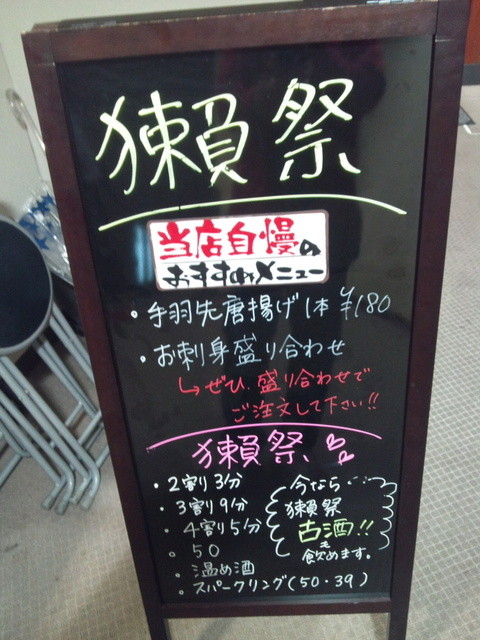 獺祭
当店自慢の
おすすめメニュー
・手羽先唐揚げ1本 ¥180
・お刺身盛り合わせ
↳ぜひ、盛り合わせで
ご注文して下さい!!
獺祭
・2割3分
・3割9分
・4割5分
。50
。温め酒
・スパークリング(50・39)
今なら…
獺祭
古酒!!
も
飲めます。